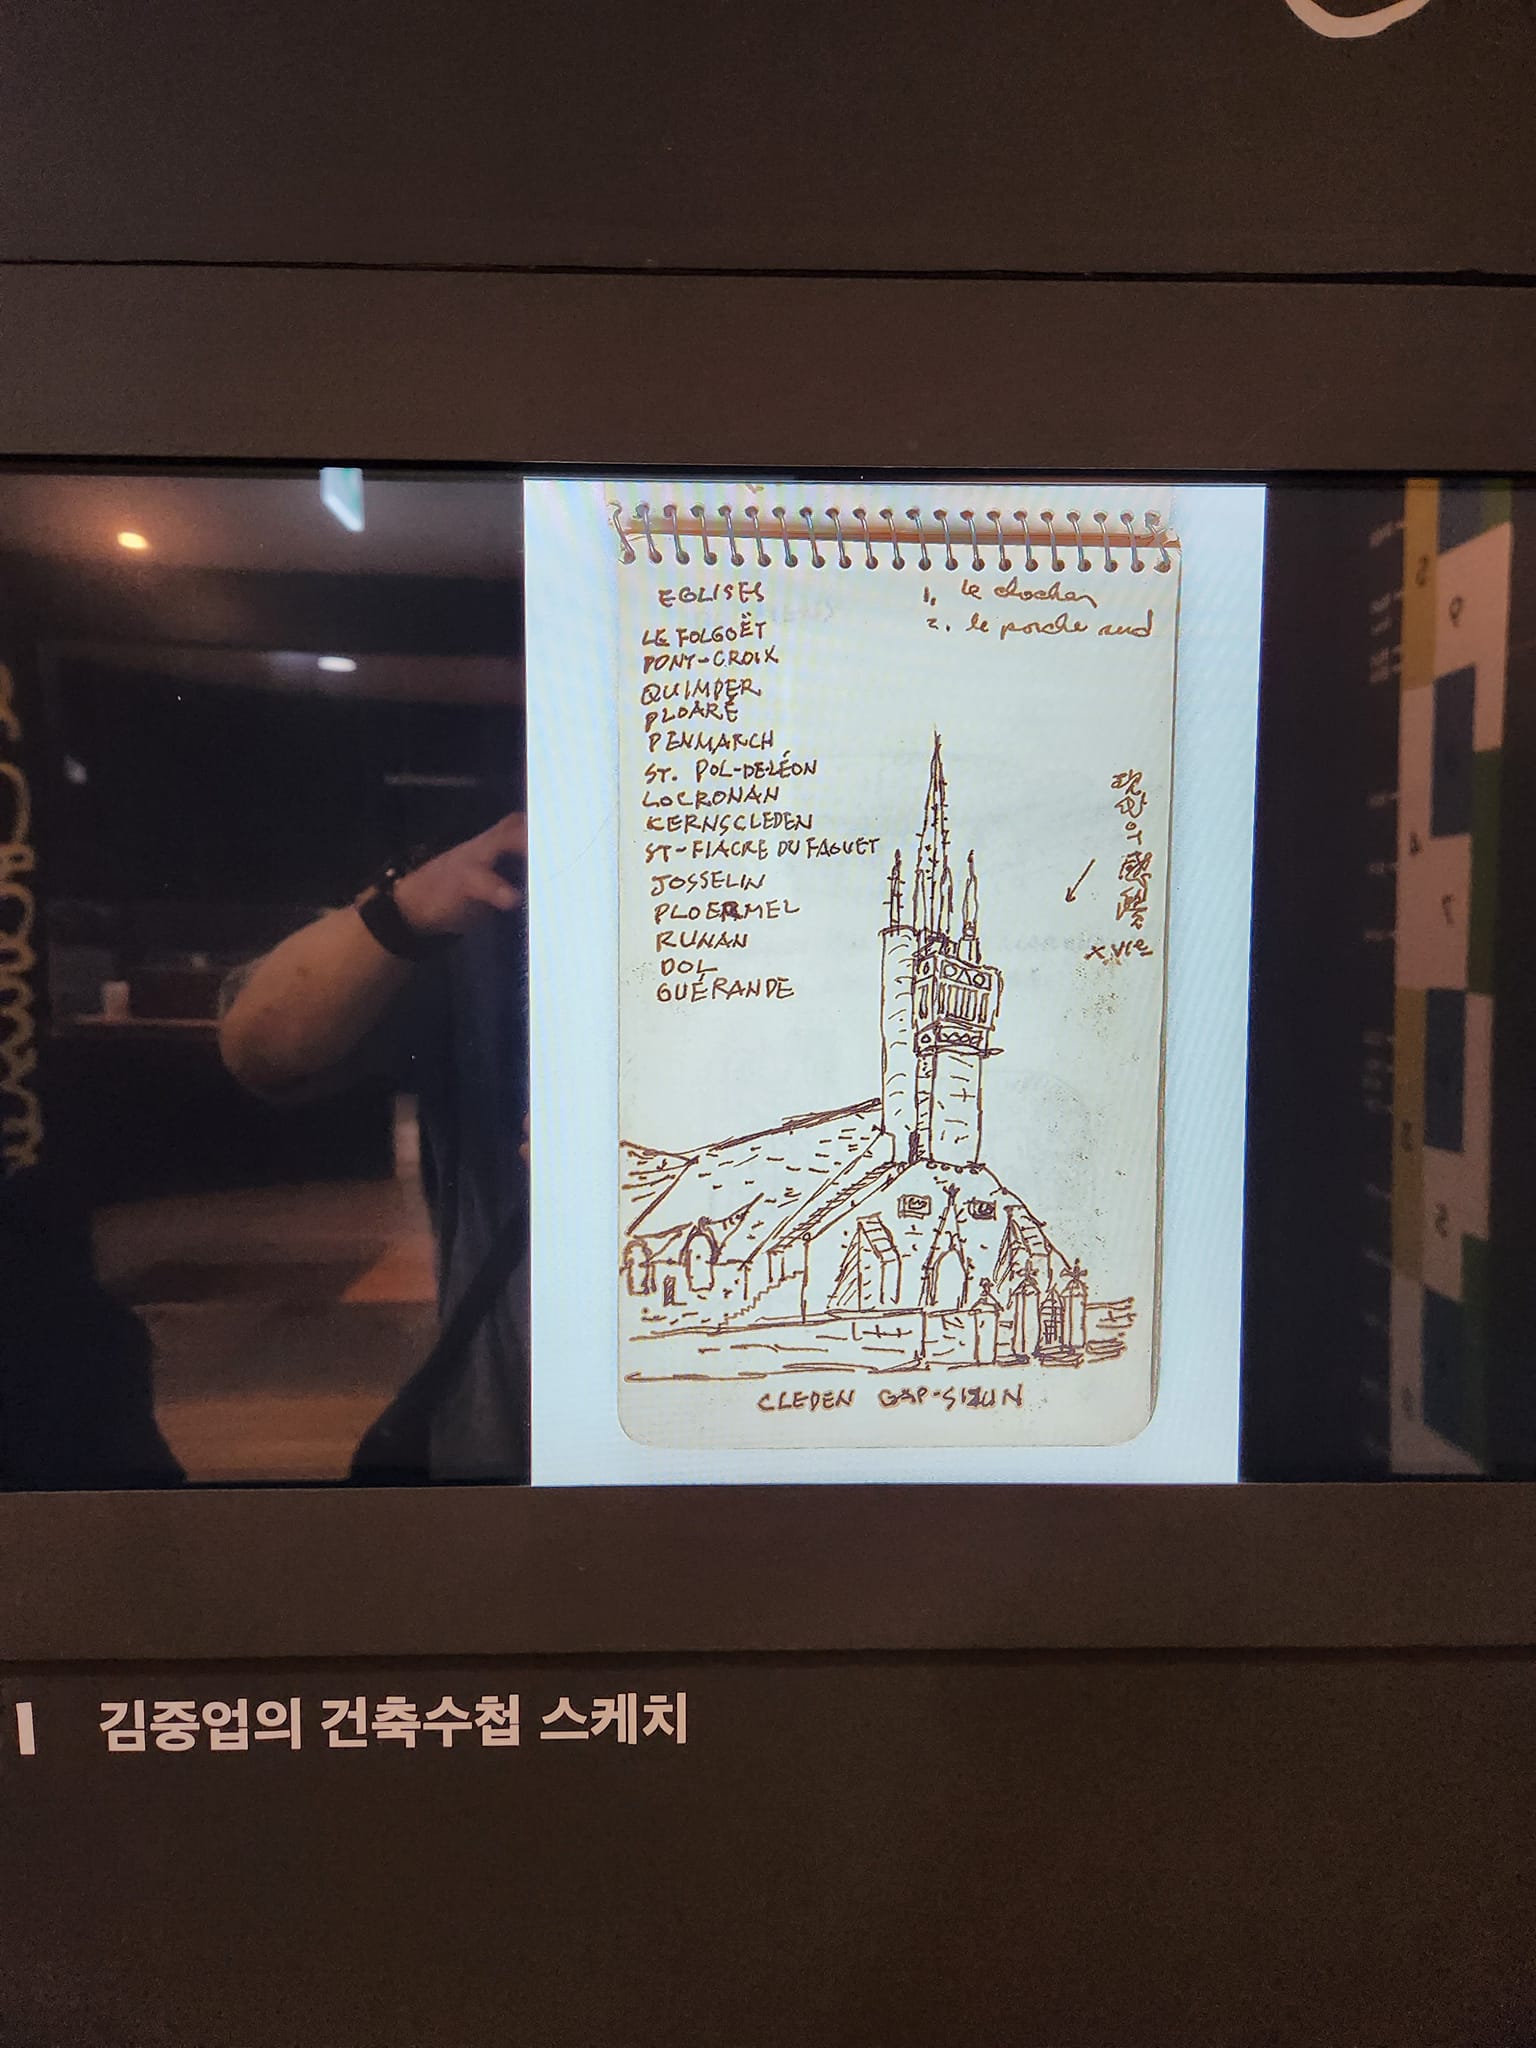 EGLISES
LE FOLGOËT
PONT-CROIX
QUIMPER
PLOARÉ
PENMARCH
ST. POL-DE-LÉON
LOCRONAN
KERNSCLEDEN
ST-FIACRE DU FAOUET
JOSSELIN
PLOERMEL
RUNAN
DOL
GUÉRANDE
1. le clocher
2. le porche sud
XVIe
CLEDEN CAP-SIZUN
김중업의 건축수첩 스케치